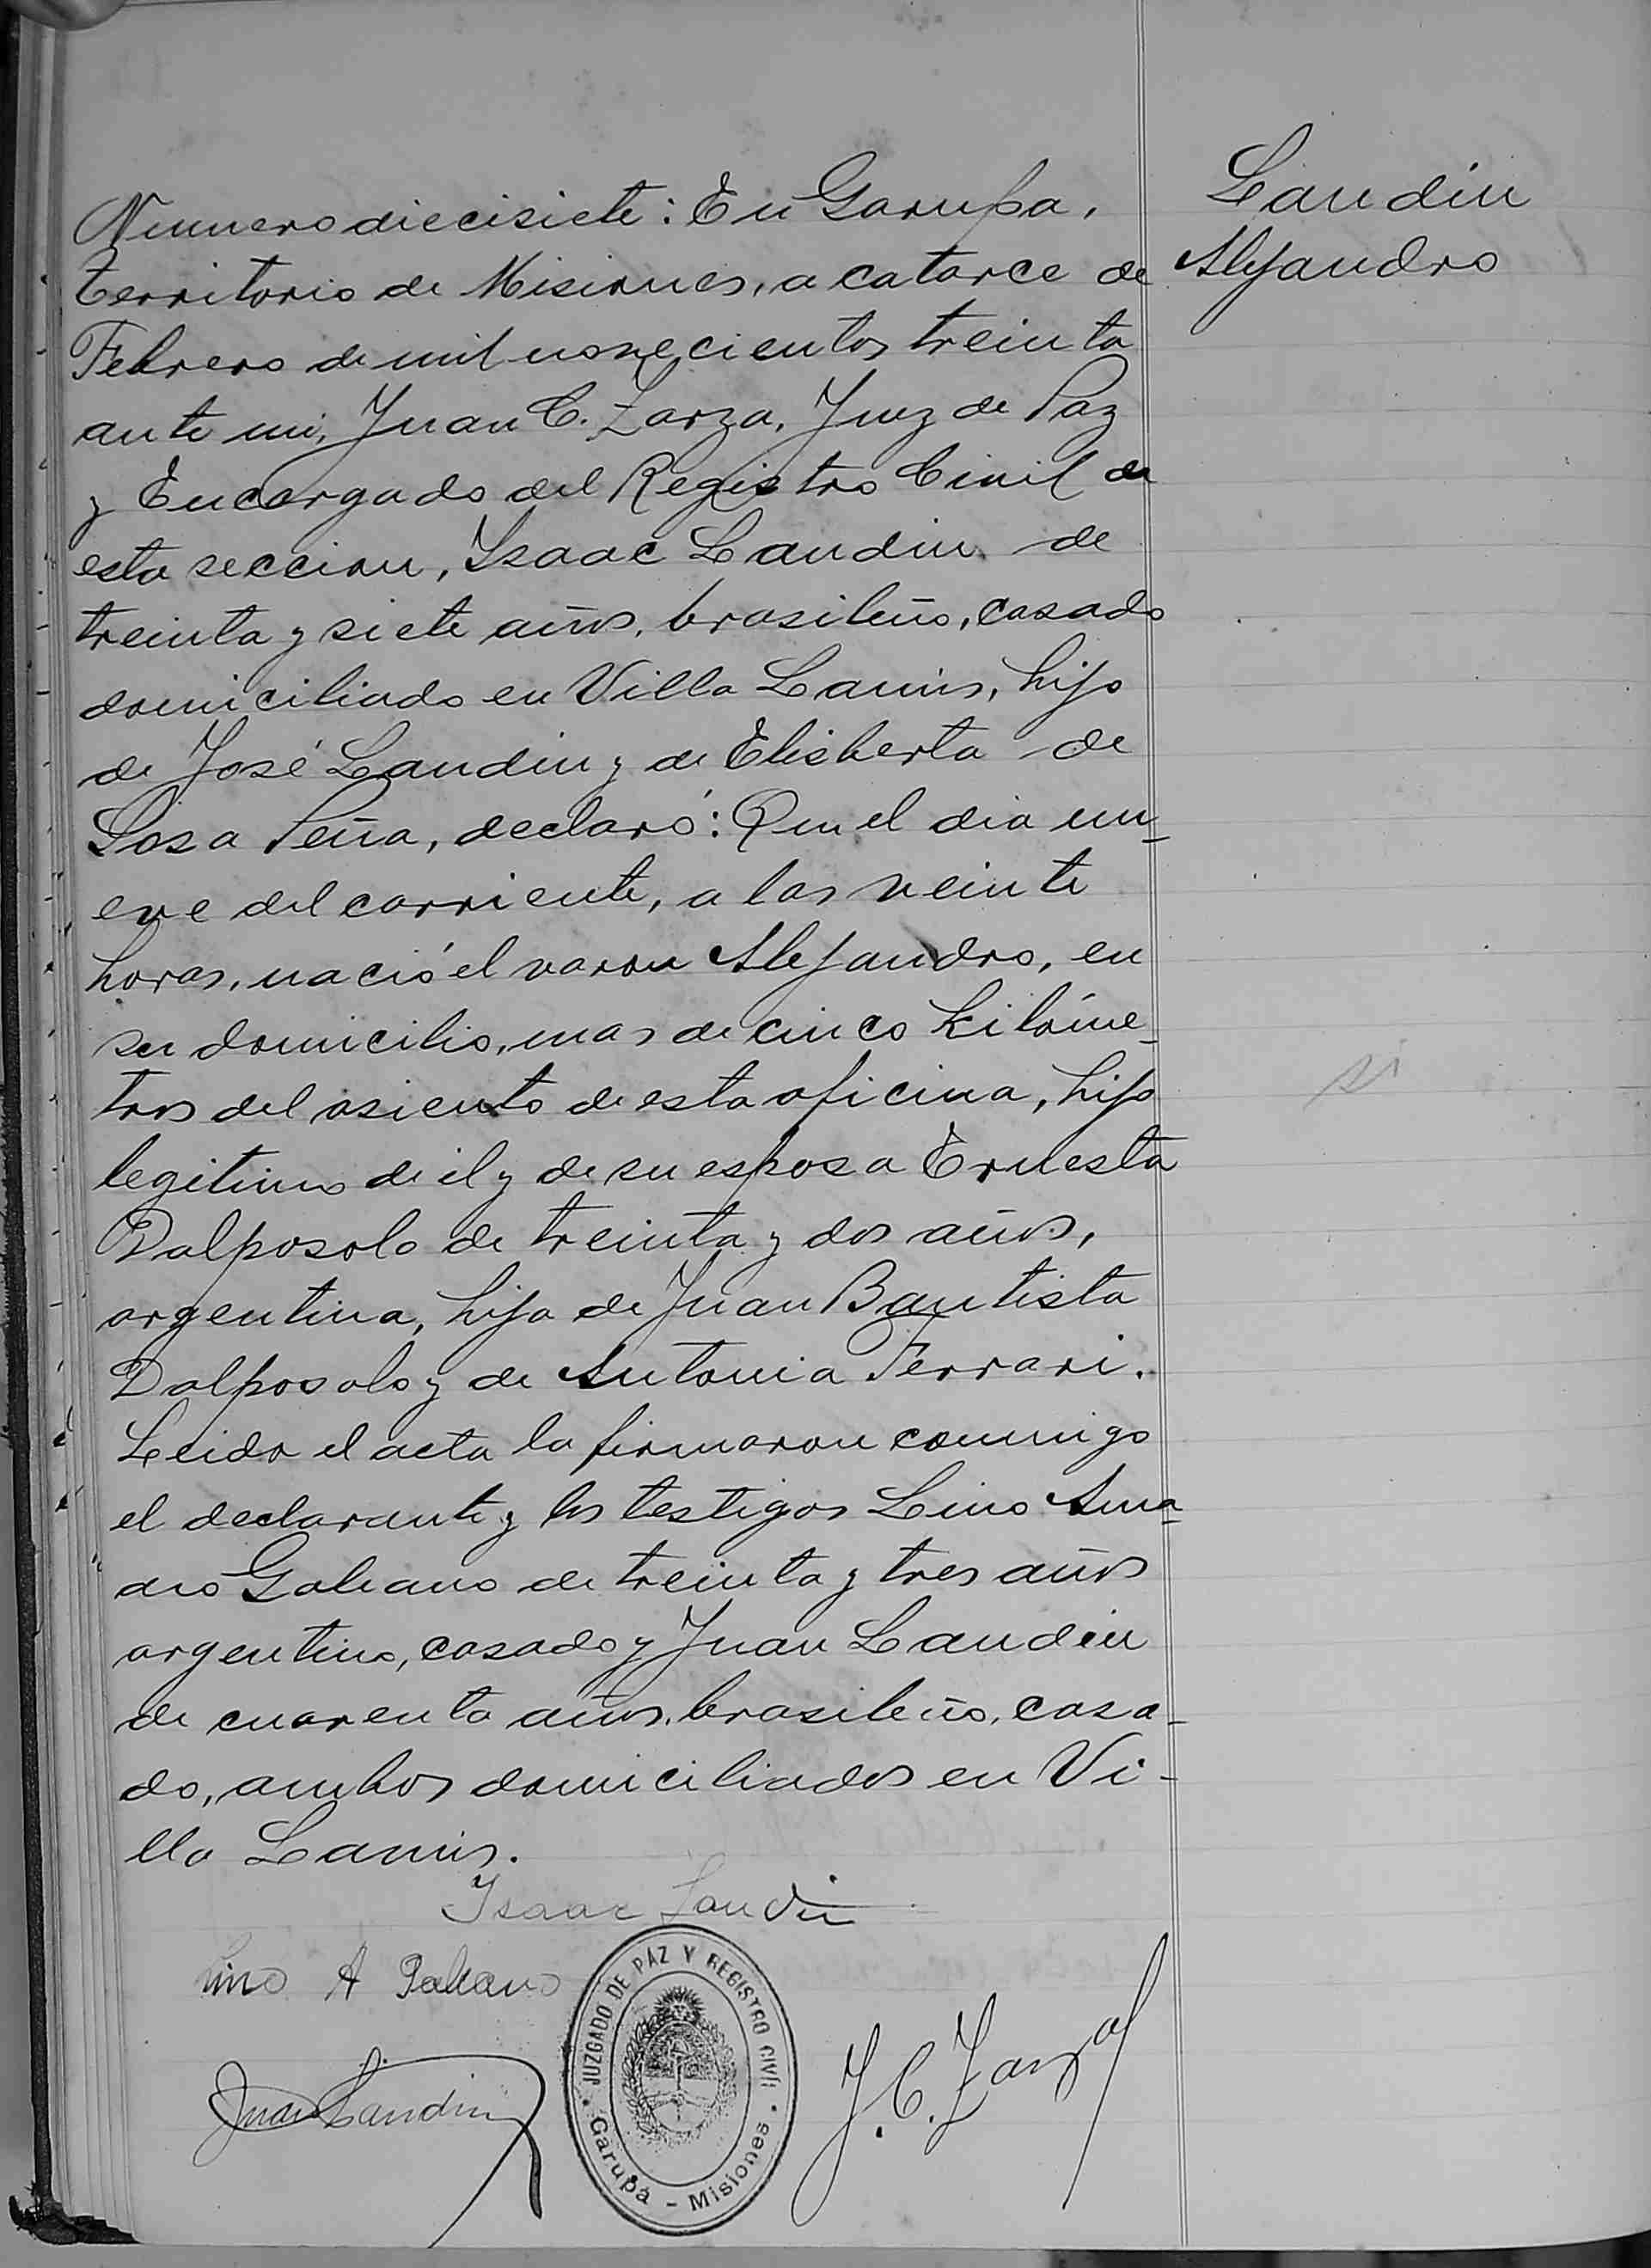 Landin
Alejandro
Numero diecisiete: En Garupa,
territorio de Misiones, a catorce de
Febrero de mil novecientos treinta
ante mi, Juan C. Zarza, Juez de Paz
y Encargado del Registro Civil de
esta seccion, Isaac Landin de
treinta y siete años, brasileño, casado
domiciliado en Villa Lanus, hijo
de José Landin y de Elisberta de
Sosa Peña, declaró: Que el dia nu-
eve del corriente, a las veinte
horas, nació el varon Alejandro, en
su domicilio, mas de cinco kilóme-
tros del asiento de esta oficina, hijo
legitimo de el y de su esposa Ernesta
Dalposolo de treinta y dos años,
argentina, hija de Juan Bautista
Dalposolo y de Antonia Ferrari.
Leida el acta la firmaron conmigo
el declarante y los testigos Lino Ama-
dio Galeano de treinta y tres años
argentino, casado y Juan Landin
de cuarenta años, brasileño, casa-
do, ambos domiciliados en Vi-
lla Lanus.
Isaac Landin
Lino A Galeano
Juan Landin
J. C. Zarza
JUZGADO DE PAZ Y REGISTRO CIVIL
Garupá - Misiones
si